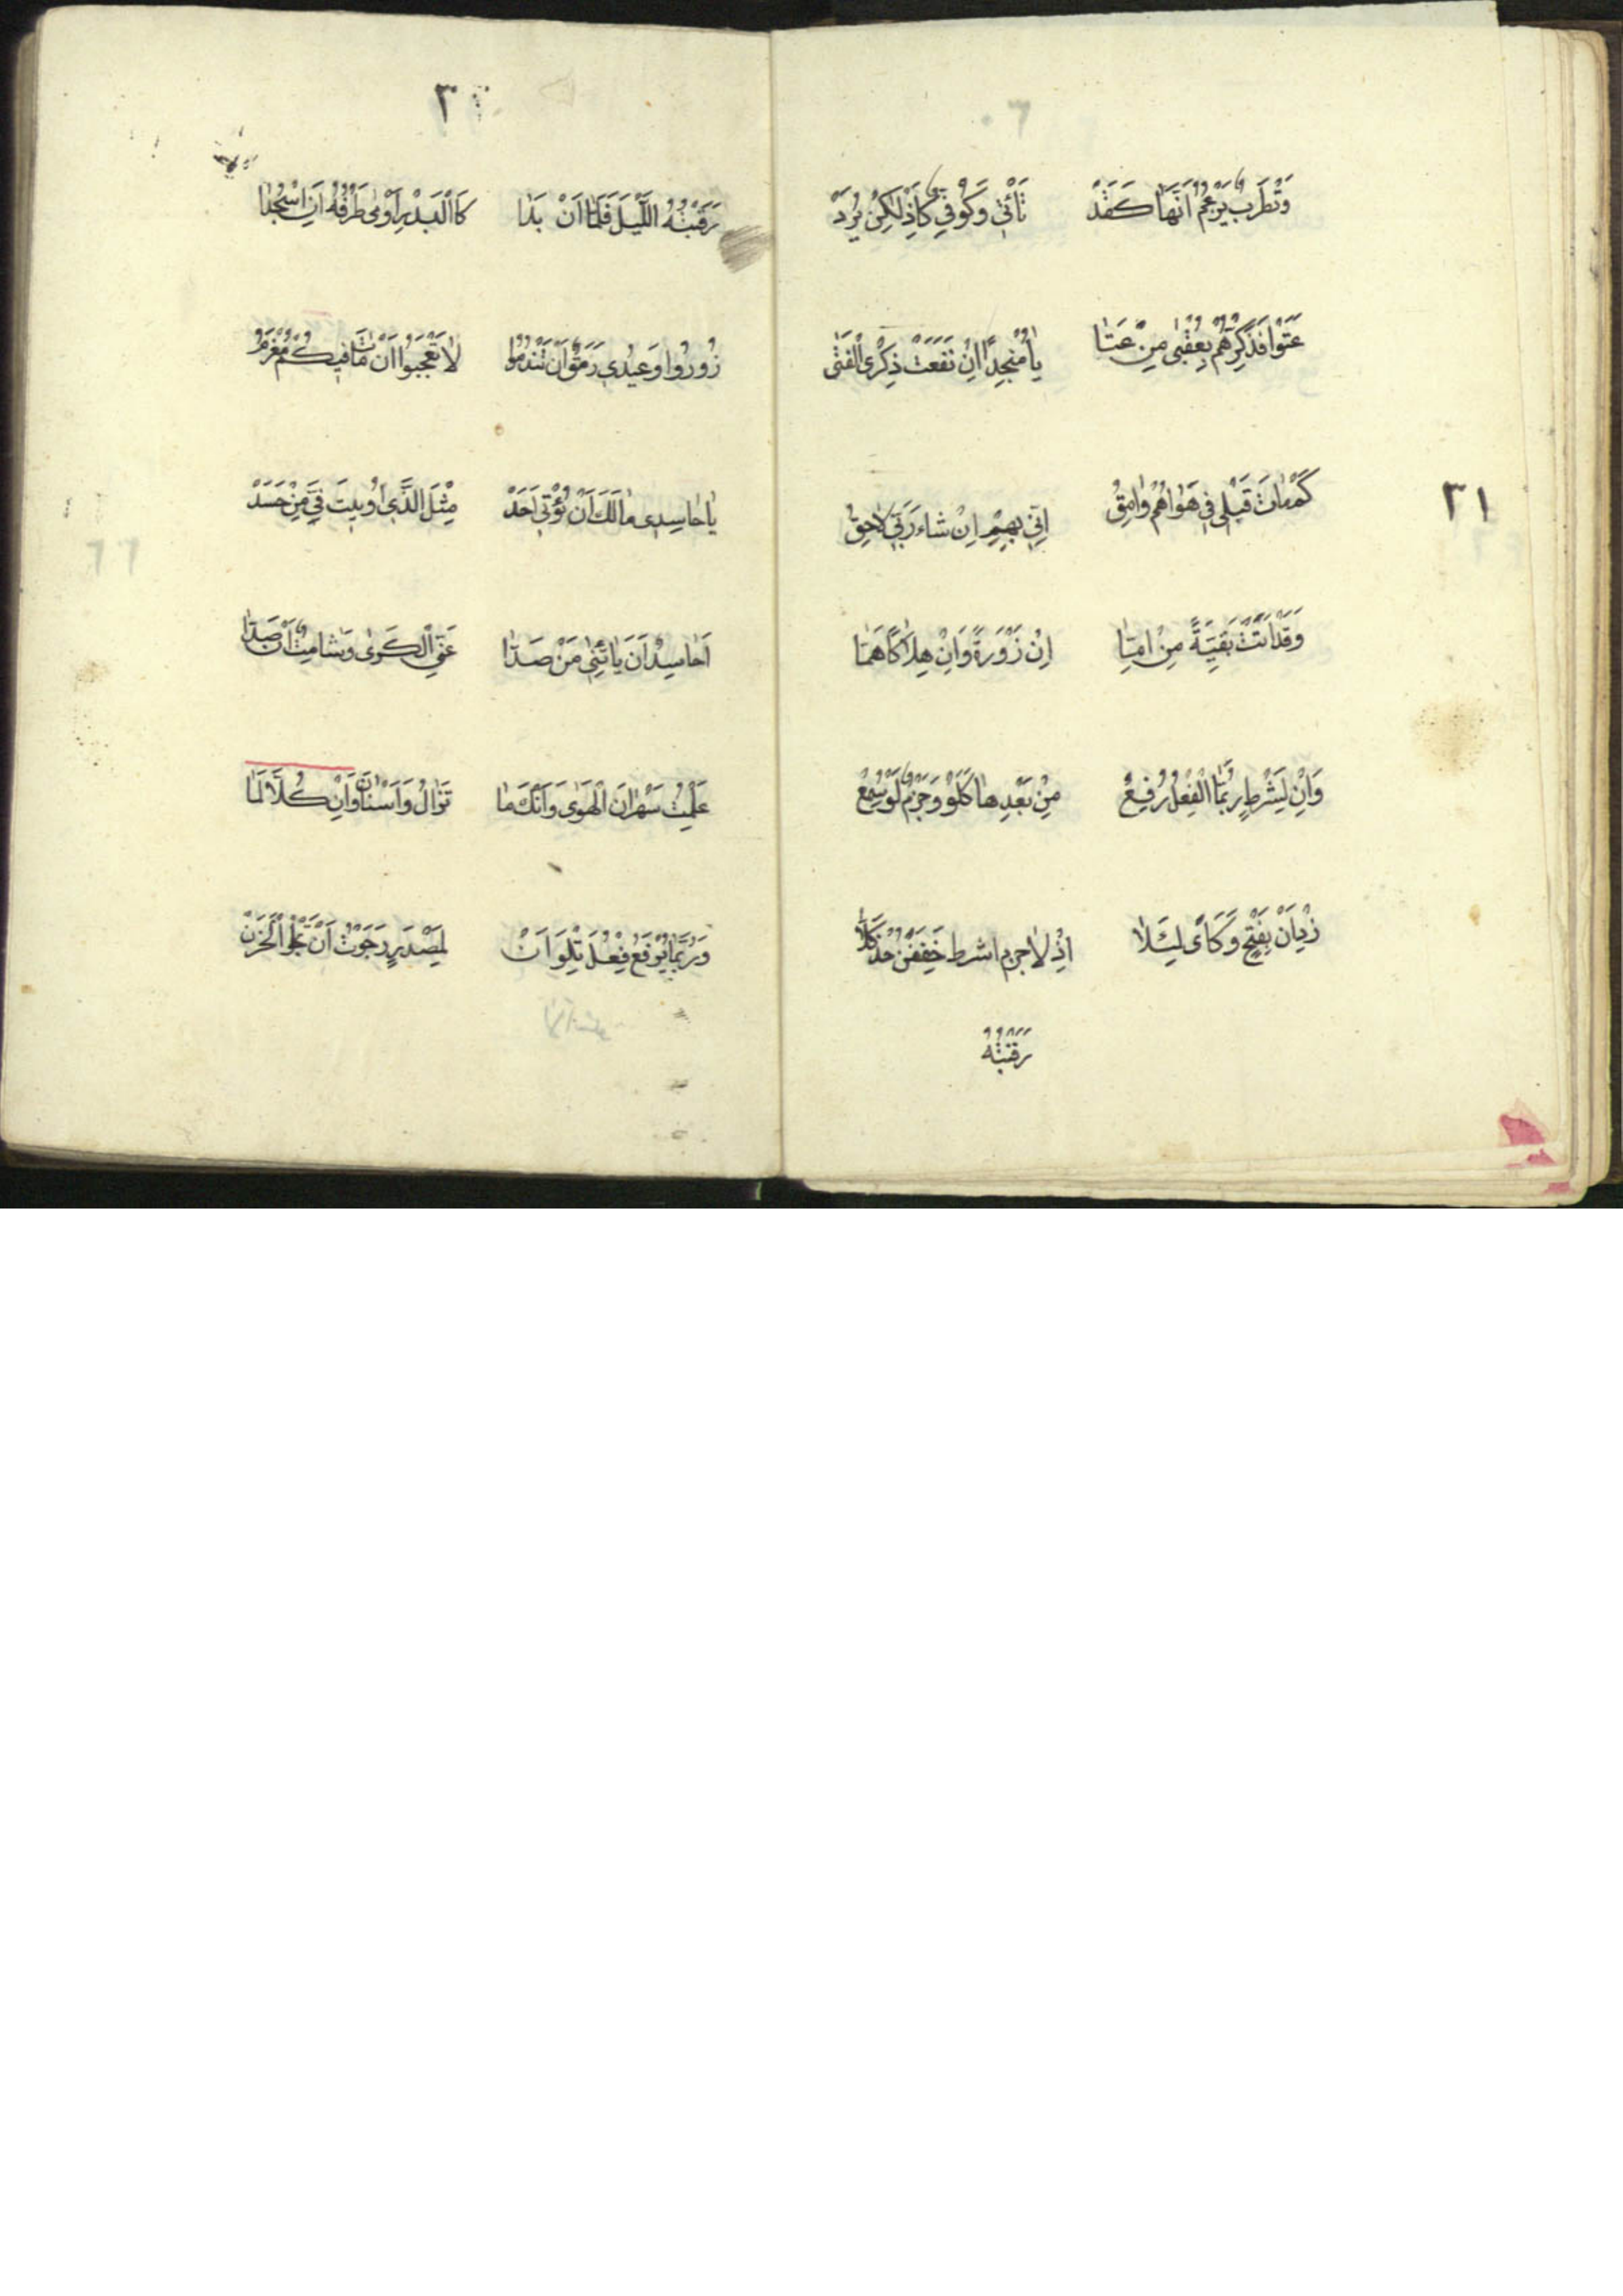 وَتُطْرَبُ يَزْعُمُ اَنَّهَا كَقَدْ تَأْتِي وَكَوْفِي كَاِذْ لٰكِنْ يُرَدْ
عَتَوْا فَذَكِّرْهُمْ بِعُقْبٰى مَنْ عَتَا يَا مُنْجِدًا اِنْ نَفَعَتْ ذِكْرَى الْفَتٰى
٣١
كَمْ مَاتَ قَبْلِي فِي هَوَاهُمْ وَامِقُ اِنِّي بِهِمْ اِنْ شَاءَ رَبِّي لَاحِقُ
وَقَدْ اَتَتْ بَقِيَّةً مِنْ اِمَّا اِنْ زَوْرَةً وَاِنْ هَلَاكًا هَمَّا
وَاِنْ لِشَرْطٍ رُبَّمَا الْفِعْلُ رُفِعْ مِنْ بَعْدِهَا كَلَوْ وَجَزْمُ لَوْ سُمِعْ
زِيدَ اَنْ بِفَتْحٍ وَكَاَىْ لِئَلَّا اِذْ لَاجَرَمَ اشرط خَفِّفَنْ خُذْ كَلَّا
رَقَبْتُهُ
٣
رَقَبْتُهُ اللَّيْلَ فَلَمَّا اَنْ بَدَا كَالْبَدْرِ اَوْمٰى طَرْفُهُ اَنِ اسْجُدَا
زُورُوا وَعِيدِي رَمَقٌ اَنْ تَنْدَمُوا لَا تَعْجَبُوا اَنْ مَاتَ فِيكُمْ مُغْرَمُ
يَا حَاسِدِي مَا لَكَ اَنْ يُؤْتٰى اَحَدْ مِثْلَ الَّذِي اُوبِيتَ فِيَّ مِنْ حَسَدْ
اَحَاسِدٌ اَنْ يَأْتِنِي مَنْ صَدَّا عَنِّي الْكَرٰى وَشَامِتٌ اَنْ صَدَّا
عَلِمْتُ سَهْرَانَ الْهَوٰى وَاَنَّكَ مَا تَوَالُ وَاَسْنَانَ وَاِنْ كُلًّا لَمَّا
وَرُبَّمَا يُوقَعُ فِعْلٌ تِلْوَ اَنْ لِمَصْدَرٍ رَجَوْتُ اَنْ تَجْلُو الْحَزَنْ